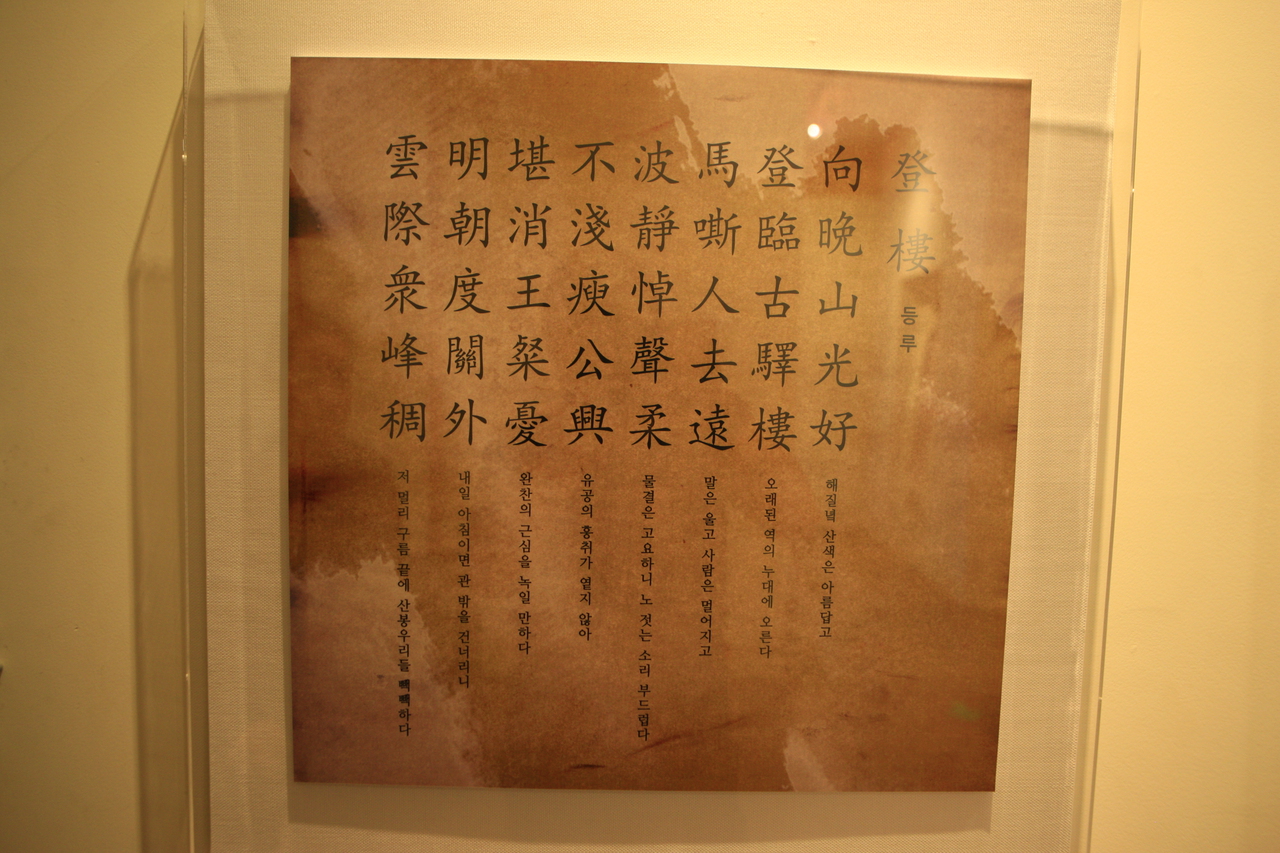 登樓 등루
向晩山光好 해질녘 산색은 아름답고
登臨古驛樓 오래된 역의 누대에 오른다
馬嘶人去遠 말은 울고 사람은 멀어지고
波靜悼聲柔 물결은 고요하니 노 젓는 소리 부드럽다
不淺瘐公興 유공의 흥취가 옅지 않아
堪消王粲憂 완찬의 근심을 녹일 만하다
明朝度關外 내일 아침이면 관 밖을 건너리니
雲際衆峰稠 저 멀리 구름 끝에 산봉우리들 빽빽하다